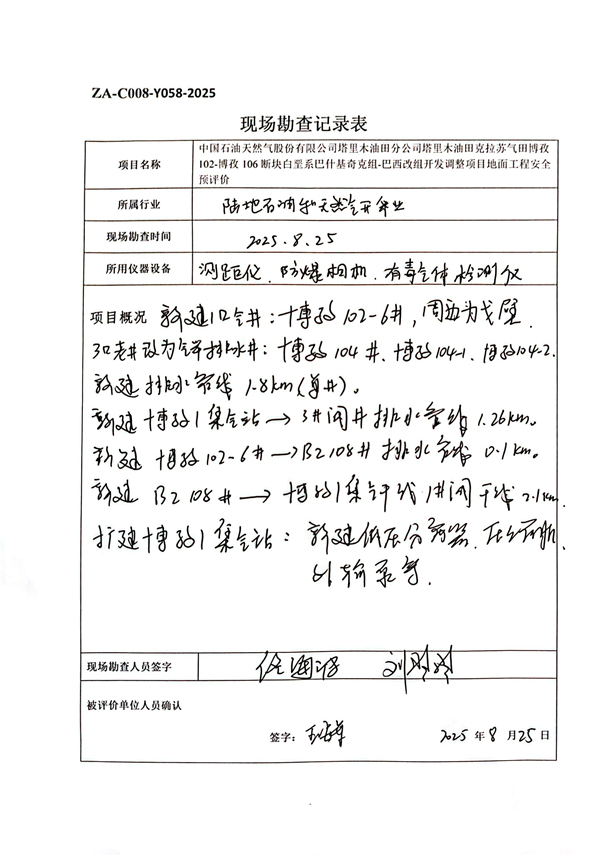 ZA-C008-Y058-2025
现场勘查记录表
项目名称
中国石油天然气股份有限公司塔里木油田分公司塔里木油田克拉苏气田博孜
102-博孜 106 断块白垩系巴什基奇克组-巴西改组开发调整项目地面工程安全
预评价
所属行业
陆地石油和天然气开采业
现场勘查时间
2025.8.25
所用仪器设备
测距仪、防爆相机、有毒气体检测仪
项目概况 新建1口气井:博孜102-6井,周边为戈壁
3口老井改为排水井:博孜104井、博孜104-1、博孜104-2.
新建排水管线1.8km(单井)。
新建博孜1集气站→3#阀井排水管线1.26km。
新建博孜102-6井→BZ108井排水管线0.1km。
新建BZ108井→博孜1集气干线1#阀 2.1km
扩建博孜1集气站:新建低压分离器、
输泵等.
现场勘查人员签字
刘
被评价单位人员确认
签字:
2025 年 8 月 25 日